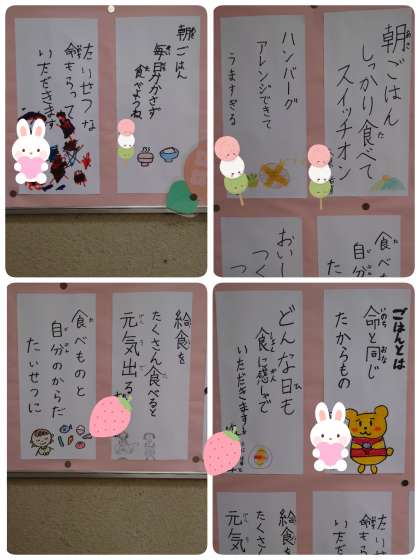 朝ごはん
毎日欠かさず
食べようね
たいせつな
命もらって
いただきます
朝ごはん
しっかり食べて
スイッチオン
ハンバーグ
アレンジできて
うますぎる
食べも
自分
た
おいし
つく
つ
給食を
たくさん食べると
元気出る
食べものと
自分のからだ
たいせつに
ごはんとは
命と同じ
たからもの
どんな日も
食に感しゃで
いただきます
たいせ
命もら
いただ
給食
たくさ
元気